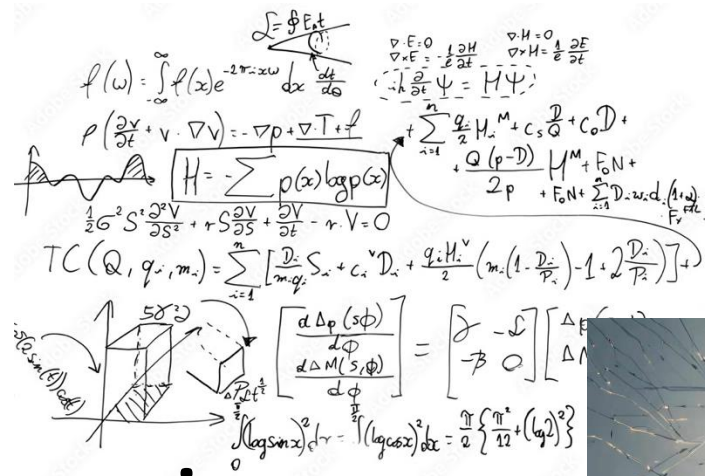 L = ∮ E₀t
∇·E=0 ∇·H=0
∇×E = -1/c ∂H/∂t ∇×H = 1/c ∂E/∂t
f(ω) = ∫_{-∞}^{∞} f(x)e^{-2πixω} dx dt/dθ
iħ ∂/∂t Ψ = HΨ
ρ(∂v/∂t + v·∇v) = -∇p + ∇·T + f
+ ∑_{i=1}^{n} q_i/2 H_i^M + c_s D/Q + c_0 D +
H = -∑ p(x) log p(x)
+ Q(p-D)/2p H^M + F_0N +
+ F_0N +
½σ²S² ∂²V/∂S² + rS ∂V/∂S + ∂V/∂t - r·V = 0
TC(Q, q_i, m_i) = ∑_{i=1}^{n} [D_i/m_iq_i S_i + c_i^v D_i + q_iH_i^v/2 (m_i(1 - D_i/P_i) - 1 + 2 D_i/P_i)] +
[dΔp(sφ)/dφ
dΔM(s,φ)/dφ] =
∫_0^{π/2} (log sin x)² dx = ∫^{π/2} (log cos x)² dx = π/2 {π²/12 + (log 2)²}